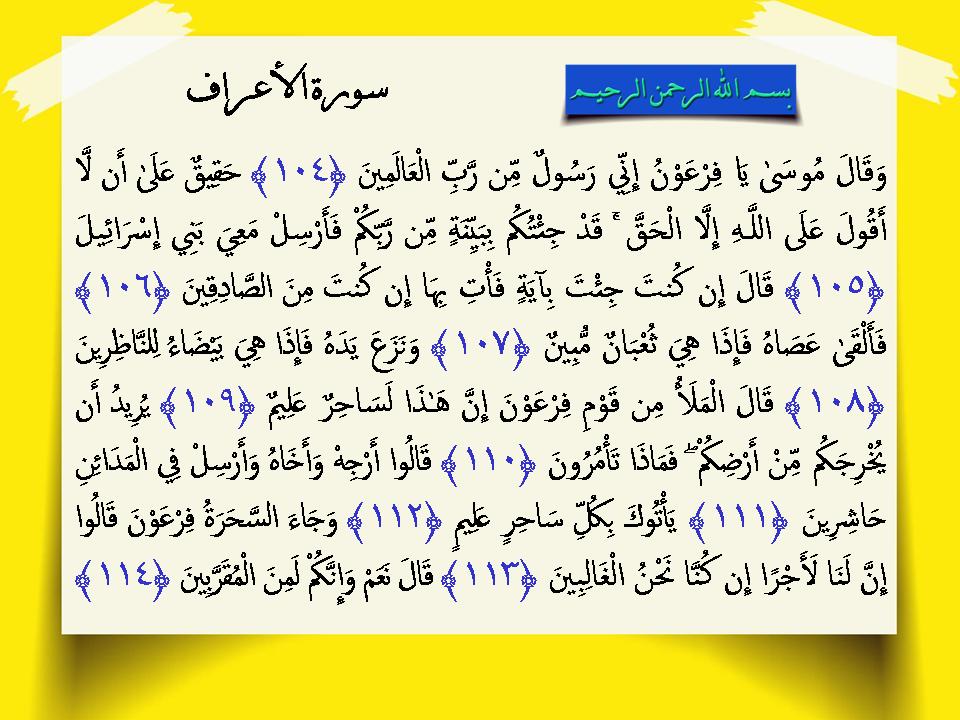 بسم الله الرحمن الرحيم
سورة الأعراف
وَقَالَ مُوسَىٰ يَا فِرْعَوْنُ إِنِّي رَسُولٌ مِّن رَّبِّ الْعَالَمِينَ ﴿١٠٤﴾ حَقِيقٌ عَلَىٰ أَن لَّا
أَقُولَ عَلَى اللَّـهِ إِلَّا الْحَقَّ ۚ قَدْ جِئْتُكُم بِبَيِّنَةٍ مِّن رَّبِّكُمْ فَأَرْسِلْ مَعِيَ بَنِي إِسْرَائِيلَ
﴿١٠٥﴾ قَالَ إِن كُنتَ جِئْتَ بِآيَةٍ فَأْتِ بِهَا إِن كُنتَ مِنَ الصَّادِقِينَ ﴿١٠٦﴾
فَأَلْقَىٰ عَصَاهُ فَإِذَا هِيَ ثُعْبَانٌ مُّبِينٌ ﴿١٠٧﴾ وَنَزَعَ يَدَهُ فَإِذَا هِيَ بَيْضَاءُ لِلنَّاظِرِينَ
﴿١٠٨﴾ قَالَ الْمَلَأُ مِن قَوْمِ فِرْعَوْنَ إِنَّ هَـٰذَا لَسَاحِرٌ عَلِيمٌ ﴿١٠٩﴾ يُرِيدُ أَن
يُخْرِجَكُم مِّنْ أَرْضِكُمْ ۖ فَمَاذَا تَأْمُرُونَ ﴿١١٠﴾ قَالُوا أَرْجِهْ وَأَخَاهُ وَأَرْسِلْ فِي الْمَدَائِنِ
حَاشِرِينَ ﴿١١١﴾ يَأْتُوكَ بِكُلِّ سَاحِرٍ عَلِيمٍ ﴿١١٢﴾ وَجَاءَ السَّحَرَةُ فِرْعَوْنَ قَالُوا
إِنَّ لَنَا لَأَجْرًا إِن كُنَّا نَحْنُ الْغَالِبِينَ ﴿١١٣﴾ قَالَ نَعَمْ وَإِنَّكُمْ لَمِنَ الْمُقَرَّبِينَ ﴿١١٤﴾